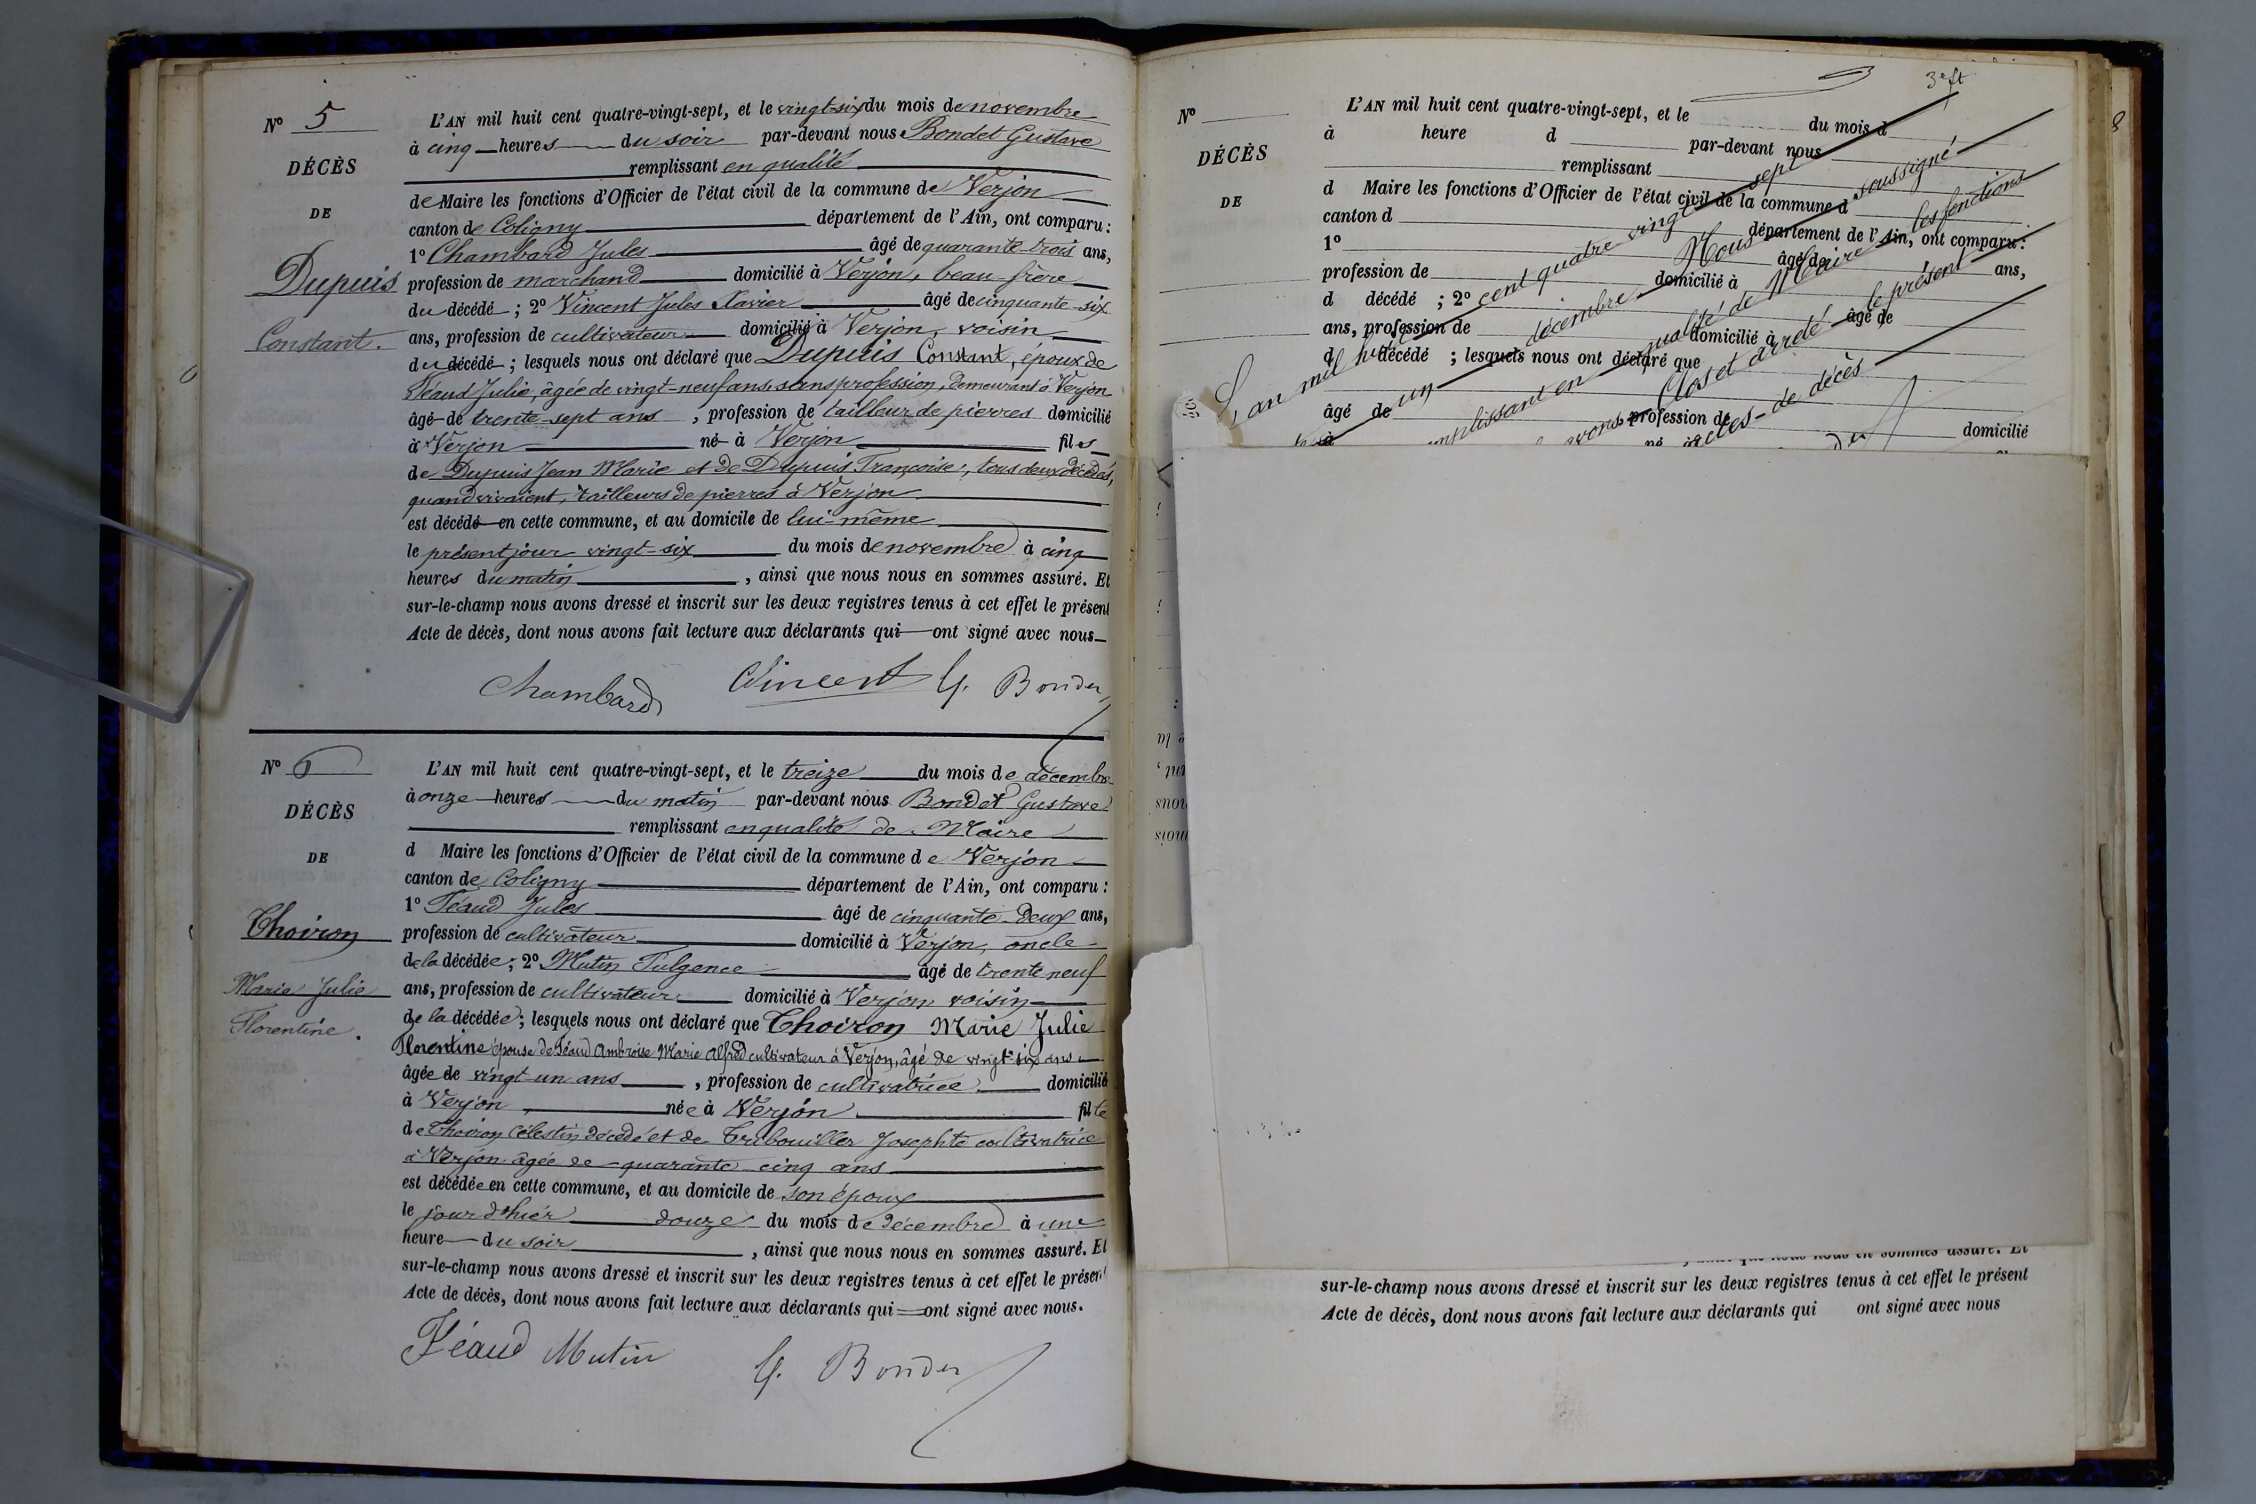 N° 5
DÉCÈS
DE
Dupuis
Constant.
L'AN mil huit cent quatre-vingt-sept, et le vingt-six du mois de novembre
à cinq heures du soir par-devant nous Bondet Gustave
remplissant en qualité
de Maire les fonctions d'Officier de l'état civil de la commune de Verjon
canton de Coligny département de l'Ain, ont comparu :
1° Chambard Jules âgé de quarante-trois ans,
profession de marchand domicilié à Verjon, beau-frère
du décédé ; 2° Vincent Jules Xavier âgé de cinquante-six
ans, profession de cultivateur domicilié à Verjon, voisin
du décédé ; lesquels nous ont déclaré que Dupuis Constant, époux de
Féaud Julie, âgée de vingt-neuf ans, sans profession, demeurant à Verjon
âgé de trente-sept ans , profession de tailleur de pierres domicilié
à Verjon né à Verjon fils
de Dupuis Jean Marie et de Dupuis Françoise, tous deux décédés,
quand vivaient, tailleurs de pierres à Verjon
est décédé en cette commune, et au domicile de lui-même
le présent jour vingt-six du mois de novembre à cinq
heures du matin , ainsi que nous nous en sommes assuré. Et
sur-le-champ nous avons dressé et inscrit sur les deux registres tenus à cet effet le présent
Acte de décès, dont nous avons fait lecture aux déclarants qui ont signé avec nous
Chambard Vincent G. Bondet
N° 6
DÉCÈS
DE
Thoiron
Marie Julie
Florentine.
L'AN mil huit cent quatre-vingt-sept, et le treize du mois de décembre
à onze heures du matin par-devant nous Bondet Gustave
remplissant en qualité de Maire
d Maire les fonctions d'Officier de l'état civil de la commune de Verjon
canton de Coligny département de l'Ain, ont comparu :
1° Féaud Jules âgé de cinquante-deux ans,
profession de cultivateur domicilié à Verjon, oncle
de la décédée ; 2° Mutin Fulgence âgé de trente neuf
ans, profession de cultivateur domicilié à Verjon voisin
de la décédée ; lesquels nous ont déclaré que Thoiron Marie Julie
Florentine épouse de Féaud Ambroise Marie Alfred cultivateur à Verjon, âgé de vingt-six ans
âgée de vingt-un ans , profession de cultivatrice domicilié
à Verjon née à Verjon fille
de Thoiron Célestin décédé et de Tribouiller Josephte cultivatrice
à Verjon âgée de quarante cinq ans
est décédée en cette commune, et au domicile de son époux
le jour d'hier douze du mois de décembre à une
heure du soir , ainsi que nous nous en sommes assuré. Et
sur-le-champ nous avons dressé et inscrit sur les deux registres tenus à cet effet le présent
Acte de décès, dont nous avons fait lecture aux déclarants qui ont signé avec nous.
Féaud Mutin G. Bondet
N°
DÉCÈS
DE
L'AN mil huit cent quatre-vingt-sept, et le du mois d
à heure d par-devant nous
remplissant
d Maire les fonctions d'Officier de l'état civil de la commune d
canton d département de l'Ain, ont comparu :
1° âgé de ans,
profession de domicilié à
d décédé ; 2° âgé de
ans, profession de domicilié à
d décédé ; lesquels nous ont déclaré que
âgé de profession de domicilié
à né à
L'an mil huit cent quatre vingt sept
un décembre Nous soussigné
remplissant en qualité de Maire les fonctions
avons clos et arrêté le présent
actes de décès
, ainsi que nous nous en sommes assuré. Et
sur-le-champ nous avons dressé et inscrit sur les deux registres tenus à cet effet le présent
Acte de décès, dont nous avons fait lecture aux déclarants qui ont signé avec nous
8